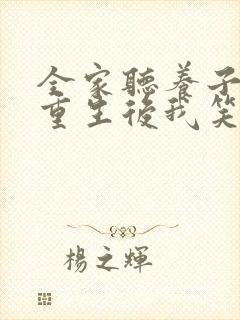 全家聽養子
重生後我笑
楊之輝